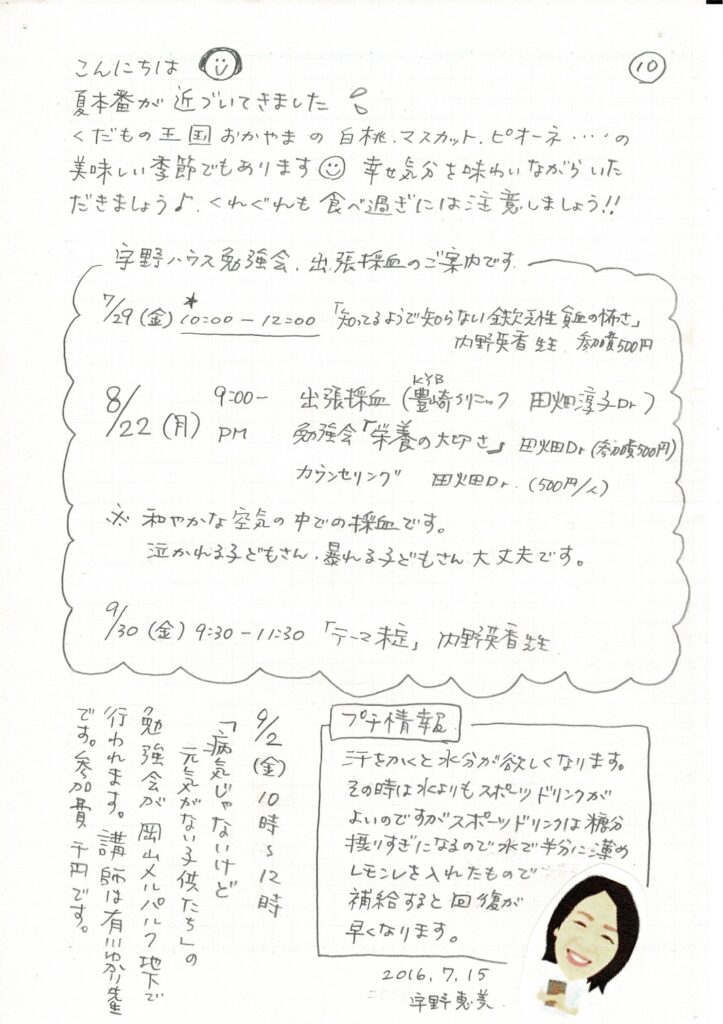 こんにちは
⑩
夏本番が近づいてきました
くだもの王国おかやまの白桃.マスカット.ピオーネ‥‥の
美味しい季節でもあります 幸せ気分を味わいながらいた
だきましょう♪.くれぐれも食べ過ぎには注意しましょう!!
宇野ハウス勉強会.出張採血のご案内です.
7/29(金) *10:00-12:00 「知ってるようで知らない鉄欠乏性貧血の怖さ」
内野英香先生 参加費500円
8/22(月) 9:00- 出張採血(豊崎クリニック 田畑淳子Dr)
KYB
PM 勉強会「栄養の大切さ」田畑Dr(参加費500円)
カウンセリング 田畑Dr.(500円/人)
※ 和やかな空気の中での採血です。
泣かれる子どもさん.暴れる子どもさん大丈夫です。
9/30(金) 9:30-11:30 「テーマ未定」内野英香先生
9/2(金)10時~12時
「病気じゃないけど
元気がない子供たち」の
勉強会が岡山メルパルク地下で
行われます。講師は有川ゆかり先生
です。参加費千円です。
プチ情報
汗をかくと水分が欲しくなります。
その時は水よりもスポーツドリンクが
よいのですがスポーツドリンクは糖分
摂りすぎになるので水で半分に薄め
レモンレを入れたもので
補給すると回復が
早くなります。
2016.7.15
宇野恵美